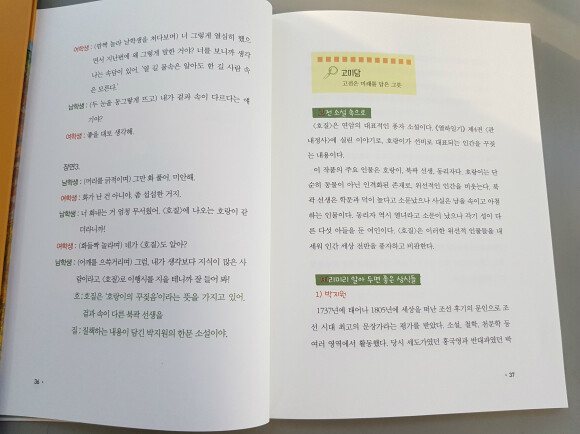 여학생 : (깜짝 놀라 남학생을 쳐다보며) 너 그렇게 열심히 했으
면서 지난번에 왜 그렇게 말한 거야? 너를 보니까 생각
나는 속담이 있어. '열 길 물속은 알아도 한 길 사람 속
은 모른다.'
남학생 : (두 눈을 동그랗게 뜨고) 내가 겉과 속이 다르다는 얘
기야?
여학생 : 좋을 대로 생각해.
장면3.
남학생 : (머리를 긁적이며) 그만 화 풀어. 미안해.
여학생 : 화가 난 건 아니야. 좀 섭섭한 거지.
남학생 : 너 화내는 거 엄청 무서웠어. 〈호질〉에 나오는 호랑이 같
더라니까!
여학생 : (화들짝 놀라며) 네가 〈호질〉도 알아?
남학생 : (어깨를 으쓱거리며) 그럼, 내가 생각보다 지식이 많은 사
람이라고. 〈호질〉로 이행시를 지을 테니까 잘 들어 봐!
호 : 호질은 '호랑이의 꾸짖음'이라는 뜻을 가지고 있어.
겉과 속이 다른 북곽 선생을
질 : 질책하는 내용이 담긴 박지원의 한문 소설이야.
36 •
고미담
고전은 미래를 담은 그릇
고전 소설 속으로
〈호질〉은 연암의 대표적인 풍자 소설이다. 《열하일기》 제4권 〈관
내정사〉에 실린 이야기로, 호랑이가 선비로 대표되는 인간을 꾸짖
는 내용이다.
이 작품의 주요 인물은 호랑이, 북곽 선생, 동리자다. 호랑이는 단
순히 동물이 아닌 인격화된 존재로, 위선적인 인간을 비웃는다. 북
곽 선생은 학문과 덕이 높다고 소문났으나 사실은 남을 속이고 아첨
하는 인물이다. 동리자 역시 열녀라고 소문이 났으나 각기 성이 다
른 다섯 아들을 둔 여인이다. 〈호질〉은 이러한 위선적 인물들을 내
세워 인간 세상 전반을 풍자하고 비판한다.
미리미리 알아 두면 좋은 상식들
1) 박지원
1737년에 태어나 1805년에 세상을 떠난 조선 후기의 문인으로 조
선 시대 최고의 문장가라는 평가를 받았다. 소설, 철학, 천문학 등
여러 영역에서 활동했다. 당시 세도가였던 홍국영과 반대파였던 박
• 37